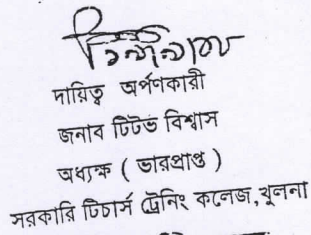 দায়িত্ব অর্পণকারী
জনাব টিটভ বিশ্বাস
অধ্যক্ষ ( ভারপ্রাপ্ত )
সরকারি টিচার্স ট্রেনিং কলেজ,খুলনা